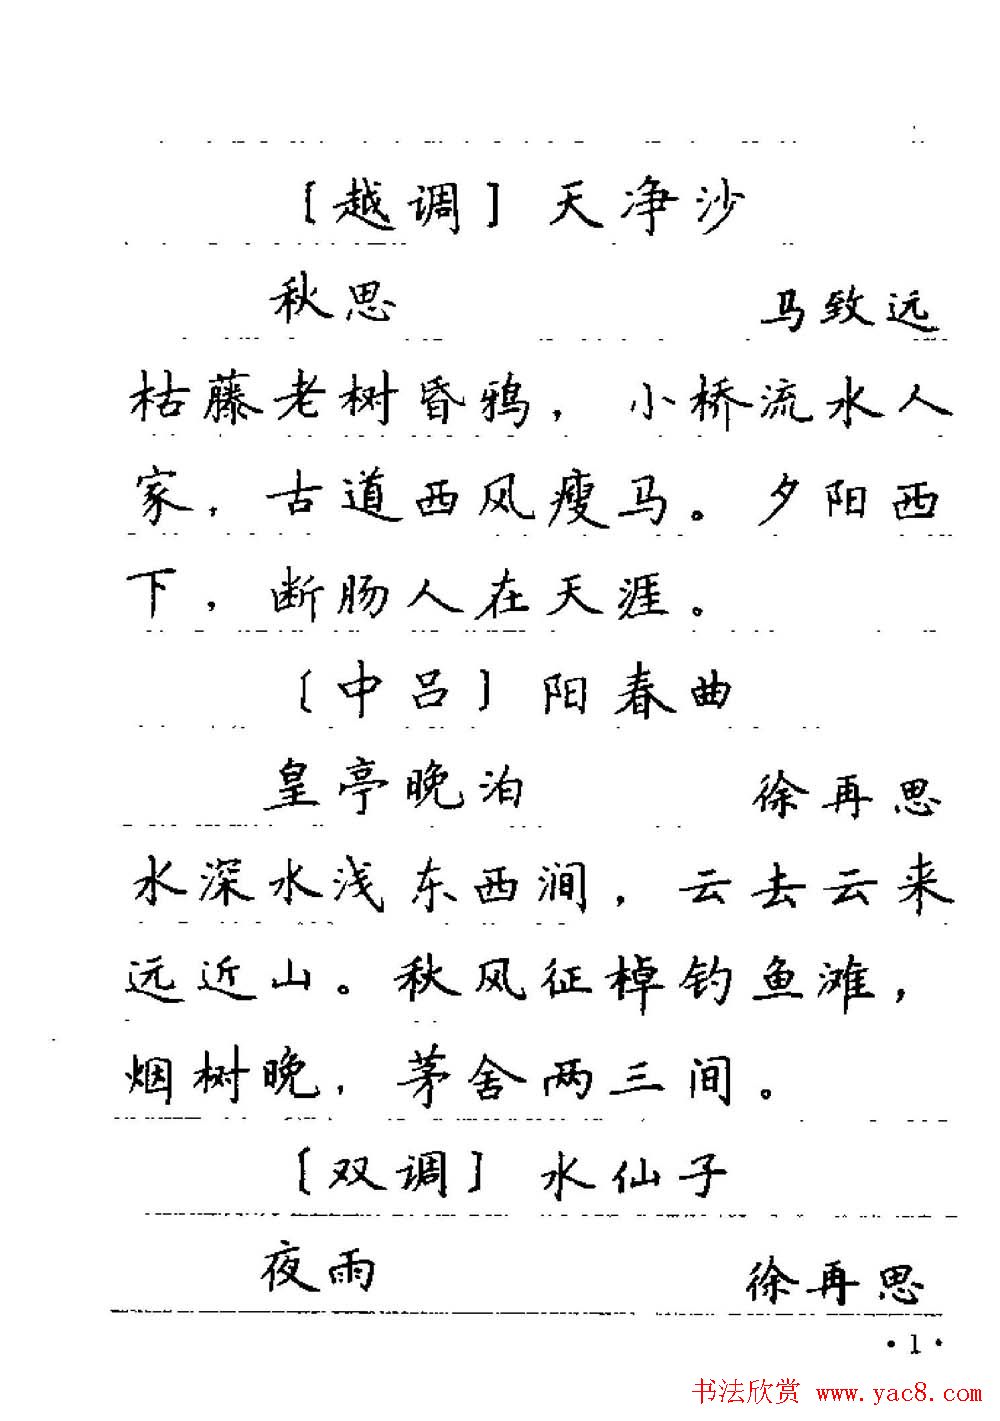 ［越调］天净沙
秋思 马致远
枯藤老树昏鸦，小桥流水人
家，古道西风瘦马。夕阳西
下，断肠人在天涯。
［中吕］阳春曲
皇亭晚泊 徐再思
水深水浅东西涧，云去云来
远近山。秋风征棹钓鱼滩，
烟树晚，茅舍两三间。
［双调］水仙子
夜雨 徐再思
·1·
书法欣赏 www.yac8.com